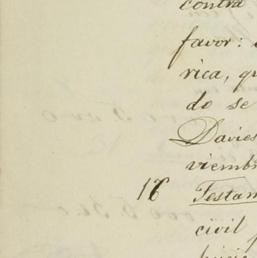 contra
favor:
rica, qu
do se
Davies
viembr
16 Testam
civil